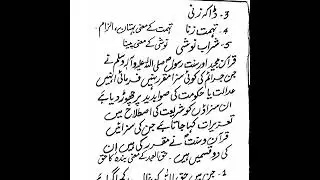 3- ڈاکہ زنی
4- تہمت زنا تہمت کے معنی بہتان، الزام۔
5- شراب نوشی نوشی کے معنی پینا
قرآن مجید اور سنت رسول صلی اللہ علیہ وآلہ وسلم نے
جن جرائم کی کوئی سزا مقرر نہیں فرمائی انہیں
عدالت یا حکومت کی صوابدید پر چھوڑ دیا ہے
ان سزاؤں کو شریعت کی اصطلاح میں
تعزیرات کہا جاتا ہے جن کی سزائیں
قرآن و سنت نے مقرر کی ہیں ان
کی دو قسمیں ہیں۔ حق العبد کے معنی بندہ کا حق
1- جن میں حق اللہ کو غالب رکھا گیا ہے